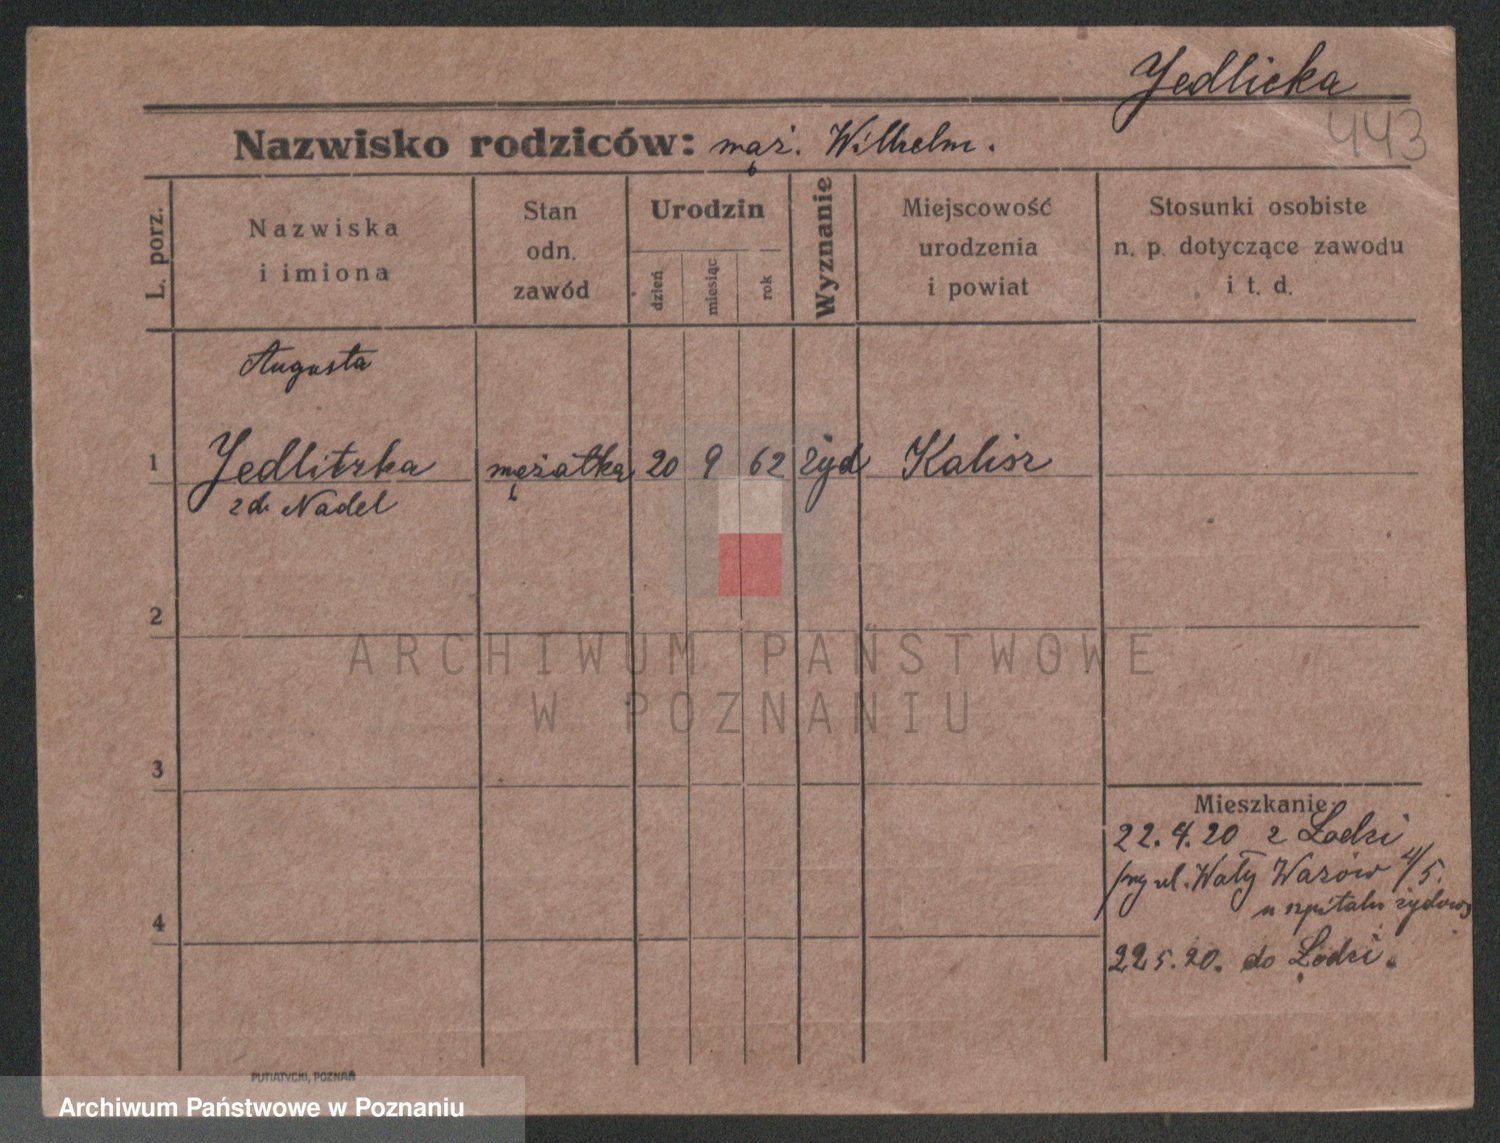 Jedlicka
443
Nazwisko rodziców: mąż. Wilhelm.
L. porz.
Nazwiska
i imiona
Stan
odn.
zawód
Urodzin
dzień
miesiąc
rok
Wyznanie
Miejscowość
urodzenia
i powiat
Stosunki osobiste
n. p. dotyczące zawodu
i t. d.
Augusta
1 Jedlitzka mężatka 20 9 62 żyd Kalisz
zd. Nadel
2
ARCHIWUM PAŃSTWOWE
W POZNANIU
3
Mieszkanie
22.4.20 z Łodzi
ul. Wały Wazów 4/5.
w szpitalu
4
22 5. 20. do Łodzi.
PUTIATYCKI, POZNAŃ
Archiwum Państwowe w Poznaniu